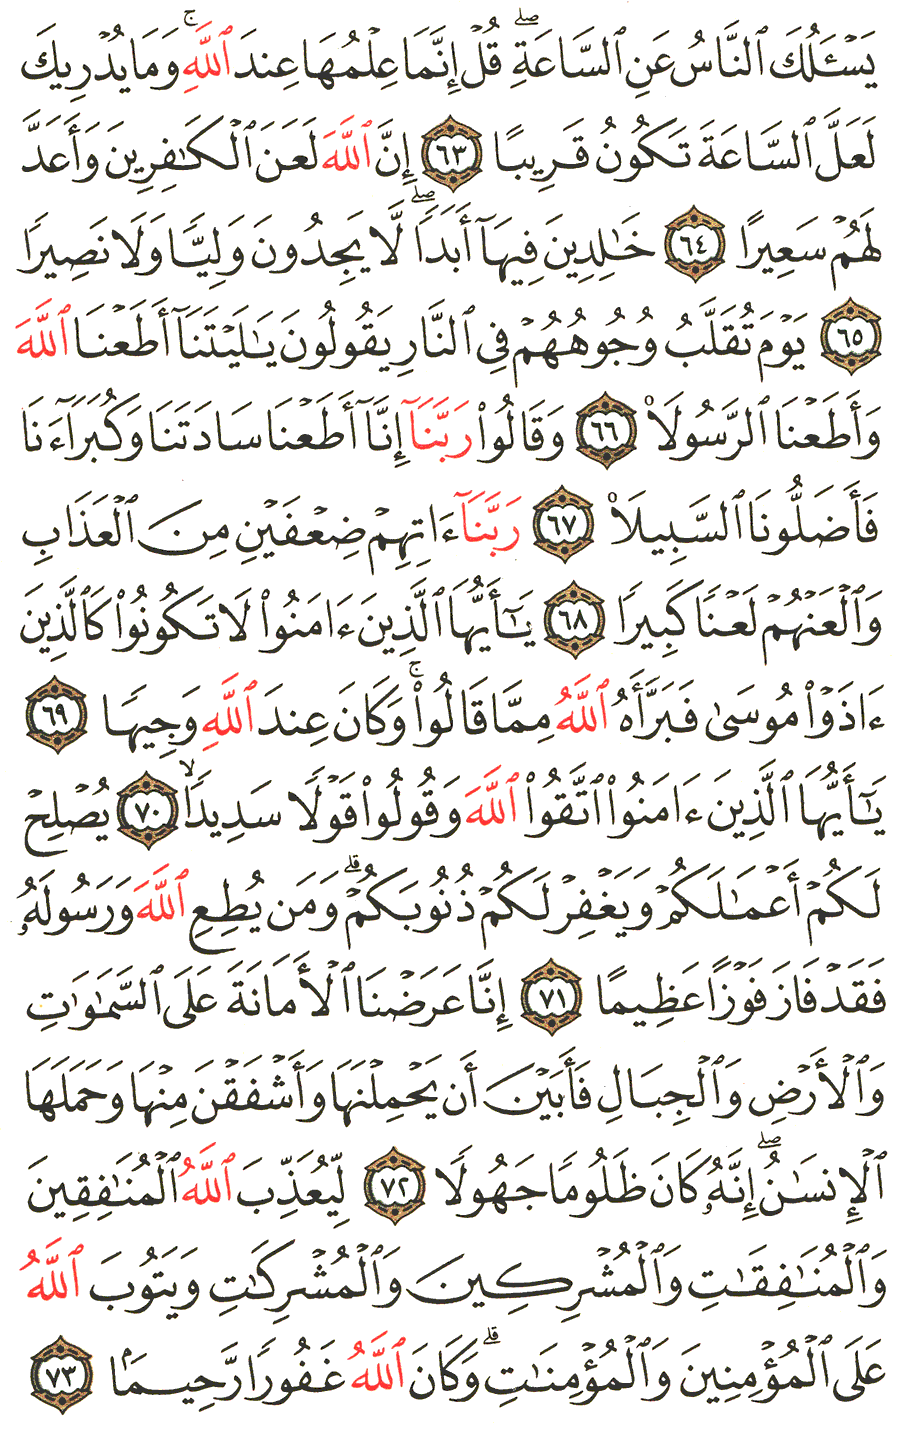 يَسْـَٔلُكَ ٱلنَّاسُ عَنِ ٱلسَّاعَةِ ۖ قُلْ إِنَّمَا عِلْمُهَا عِندَ ٱللَّهِ ۚ وَمَا يُدْرِيكَ
لَعَلَّ ٱلسَّاعَةَ تَكُونُ قَرِيبًا ٦٣ إِنَّ ٱللَّهَ لَعَنَ ٱلْكَٰفِرِينَ وَأَعَدَّ
لَهُمْ سَعِيرًا ٦٤ خَٰلِدِينَ فِيهَآ أَبَدًا ۖ لَّا يَجِدُونَ وَلِيًّا وَلَا نَصِيرًا
٦٥ يَوْمَ تُقَلَّبُ وُجُوهُهُمْ فِى ٱلنَّارِ يَقُولُونَ يَٰلَيْتَنَآ أَطَعْنَا ٱللَّهَ
وَأَطَعْنَا ٱلرَّسُولَا۠ ٦٦ وَقَالُوا۟ رَبَّنَآ إِنَّآ أَطَعْنَا سَادَتَنَا وَكُبَرَآءَنَا
فَأَضَلُّونَا ٱلسَّبِيلَا۠ ٦٧ رَبَّنَآ ءَاتِهِمْ ضِعْفَيْنِ مِنَ ٱلْعَذَابِ
وَٱلْعَنْهُمْ لَعْنًا كَبِيرًا ٦٨ يَٰٓأَيُّهَا ٱلَّذِينَ ءَامَنُوا۟ لَا تَكُونُوا۟ كَٱلَّذِينَ
ءَاذَوْا۟ مُوسَىٰ فَبَرَّأَهُ ٱللَّهُ مِمَّا قَالُوا۟ ۚ وَكَانَ عِندَ ٱللَّهِ وَجِيهًا ٦٩
يَٰٓأَيُّهَا ٱلَّذِينَ ءَامَنُوا۟ ٱتَّقُوا۟ ٱللَّهَ وَقُولُوا۟ قَوْلًا سَدِيدًا ۙ ٧٠ يُصْلِحْ
لَكُمْ أَعْمَٰلَكُمْ وَيَغْفِرْ لَكُمْ ذُنُوبَكُمْ ۗ وَمَن يُطِعِ ٱللَّهَ وَرَسُولَهُۥ
فَقَدْ فَازَ فَوْزًا عَظِيمًا ٧١ إِنَّا عَرَضْنَا ٱلْأَمَانَةَ عَلَى ٱلسَّمَٰوَٰتِ
وَٱلْأَرْضِ وَٱلْجِبَالِ فَأَبَيْنَ أَن يَحْمِلْنَهَا وَأَشْفَقْنَ مِنْهَا وَحَمَلَهَا
ٱلْإِنسَٰنُ ۖ إِنَّهُۥ كَانَ ظَلُومًا جَهُولًا ٧٢ لِّيُعَذِّبَ ٱللَّهُ ٱلْمُنَٰفِقِينَ
وَٱلْمُنَٰفِقَٰتِ وَٱلْمُشْرِكِينَ وَٱلْمُشْرِكَٰتِ وَيَتُوبَ ٱللَّهُ
عَلَى ٱلْمُؤْمِنِينَ وَٱلْمُؤْمِنَٰتِ ۗ وَكَانَ ٱللَّهُ غَفُورًا رَّحِيمَۢا ٧٣